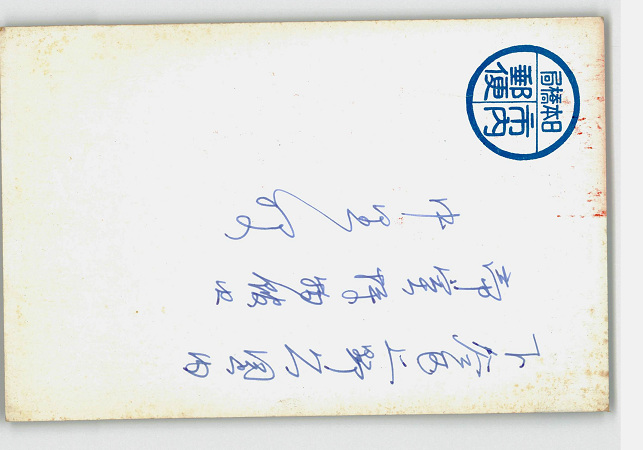 日本橋局
市内
郵便
下谷区上野公園内
帝室博物館
中